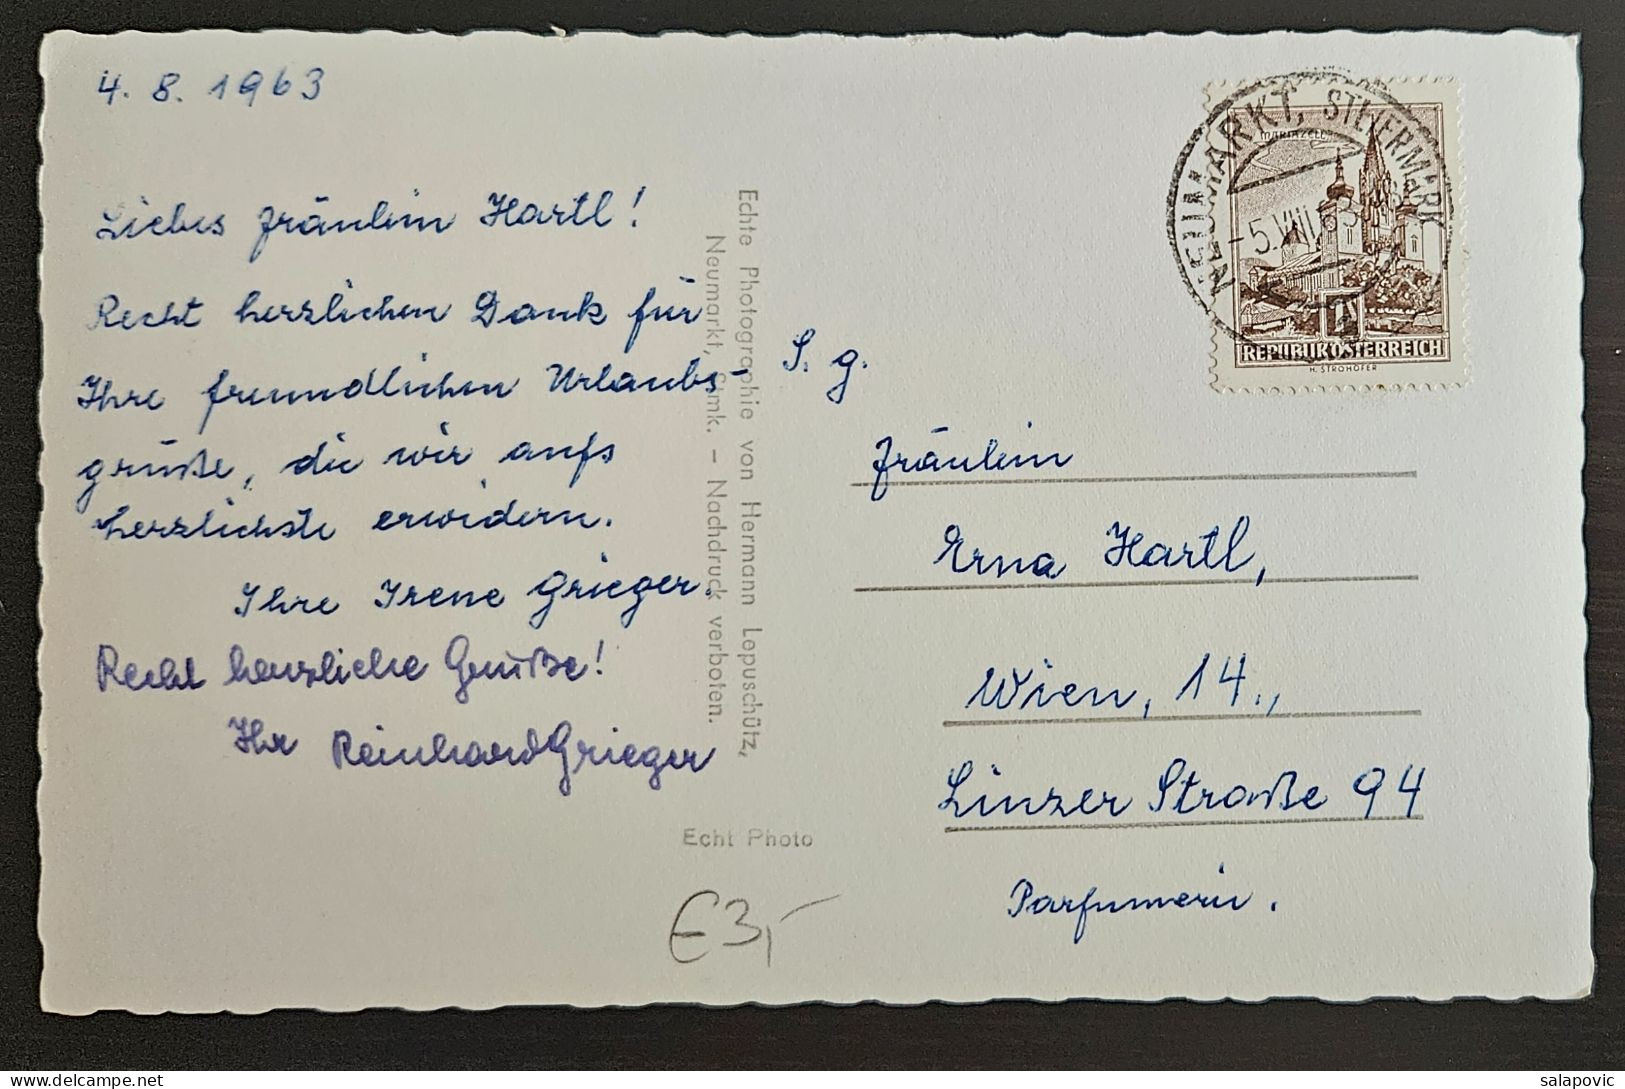 4. 8. 1963
Liebes Fräulein Hartl!
Recht herzlichen Dank für
Ihre freundlichen Urlaubs-
grüße, die wir aufs
herzlichste erwidern.
Ihre Irene Grieger.
Recht herzliche Grüße!
Ihr Reinhard Grieger
Echte Photographie von Hermann Lepuschütz,
Neumarkt, Stmk. – Nachdruck verboten.
Echt Photo
€ 3,-
NEUMARKT, STEIERMARK
-5.VIII.63
MARIAZELL
REPUBLIK ÖSTERREICH
H. STROHOFER
S. g.
Fräulein
Erna Hartl,
Wien, 14.,
Linzer Straße 94
Parfumerie.
salapovic